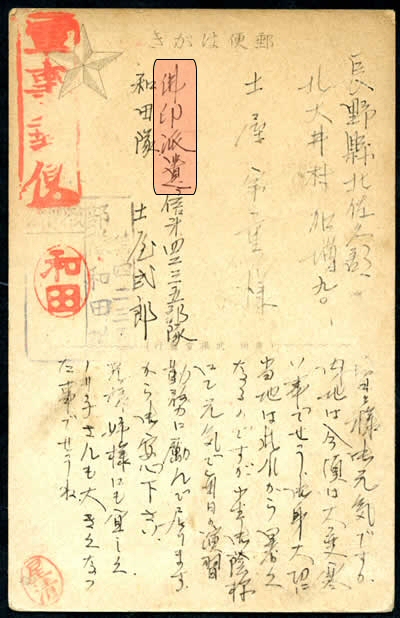 郵便はがき
軍事郵便
長野縣北佐久郡
北大井村加増九〇
土屋 重様
佛印派遣信第四二三五部隊
和田隊
土屋武郎
和田
皆々様お元気ですか
内地は今頃は大変寒
い事でせう お身大切に
当地は此れから暑く
なるのですが小生お陰様
にて元気で毎日の演習
勤務に励んで居ります
から御安心下さい
姉様にも宜しく
ノリ子さんも大きくなつ
た事でせうね